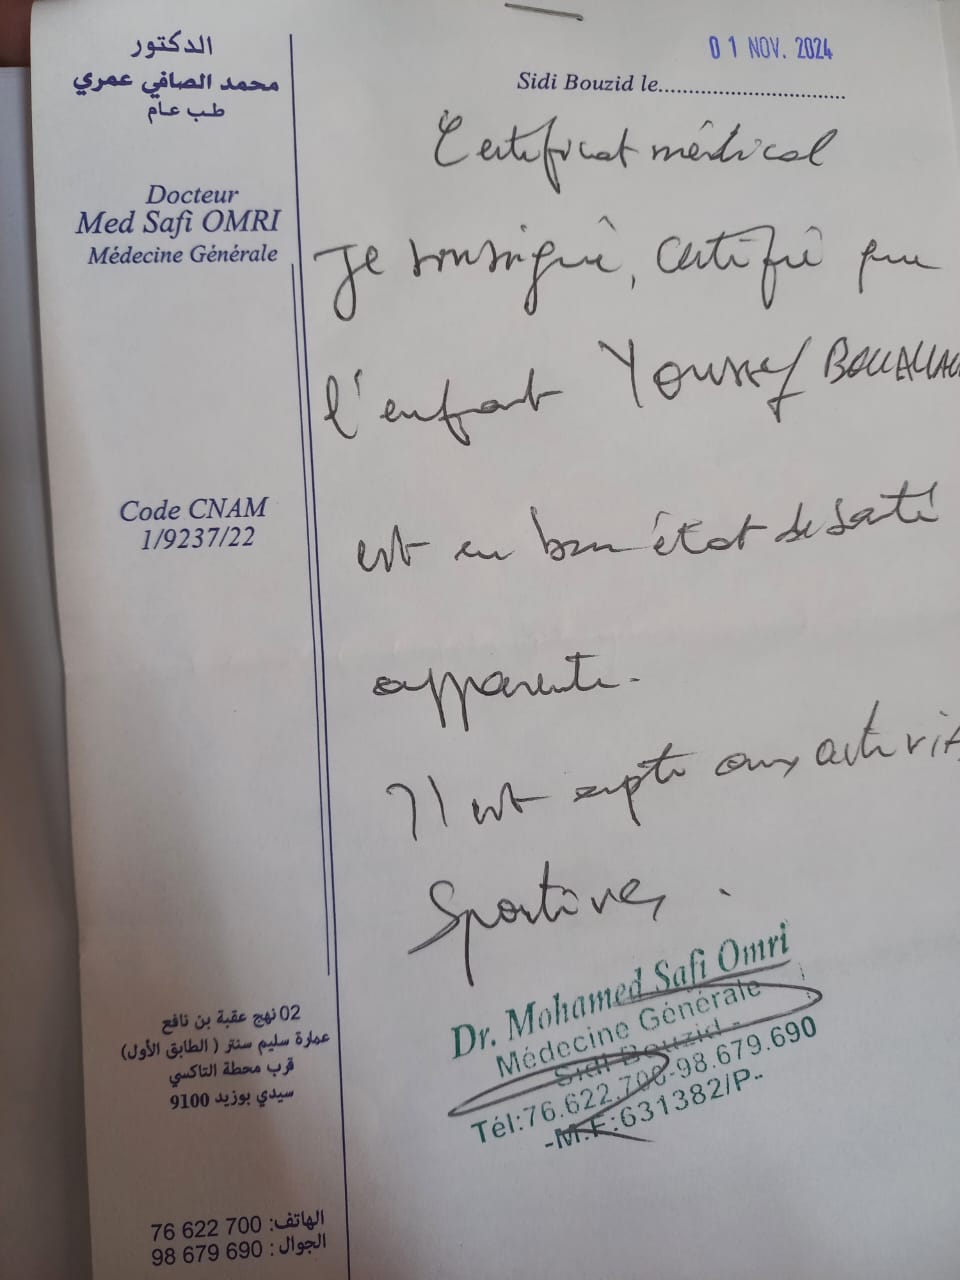 الدكتور
محمد الصافي عمري
طب عام
Docteur
Med Safi OMRI
Médecine Générale
Code CNAM
1/9237/22
01 NOV. 2024
Sidi Bouzid le
Certificat médical
Je soussigné, certifie que
l'enfant Youssef
est en bon état de santé
apparente.
Il est apte aux activit
Sportives.
Dr. Mohamed Safi Omri
Médecine Générale
Sidi Bouzid -
Tél:76.622.700-98.679.690
-M.F:631382/P-
02 نهج عقبة بن نافع
عمارة سليم سنتر ( الطابق الأول)
قرب محطة التاكسي
سيدي بوزيد 9100
الهاتف: 700 622 76
الجوال : 690 679 98